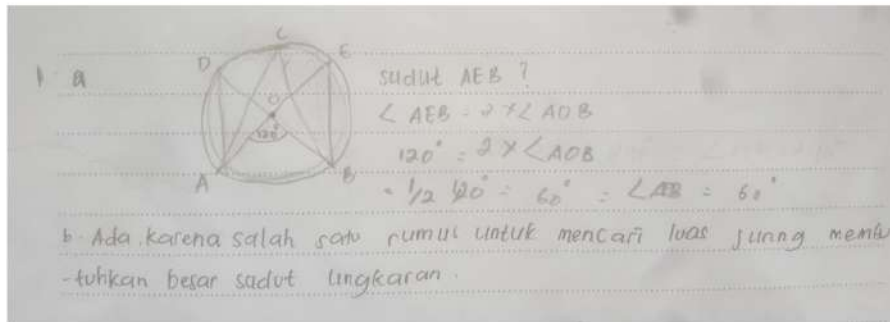 1 a
C
D
E
O
120°
A
B
sudut AEB ?
∠ AEB = 2 × ∠ AOB
120° = 2 × ∠AOB
= 1/2 120° = 60° = ∠AEB = 60°
b. Ada karena salah satu rumus untuk mencari luas juring membu
-tuhkan besar sudut lingkaran.